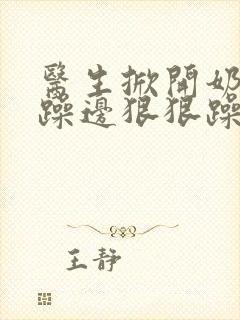 醫生掀開奶
躁邊狠狠躁
王静